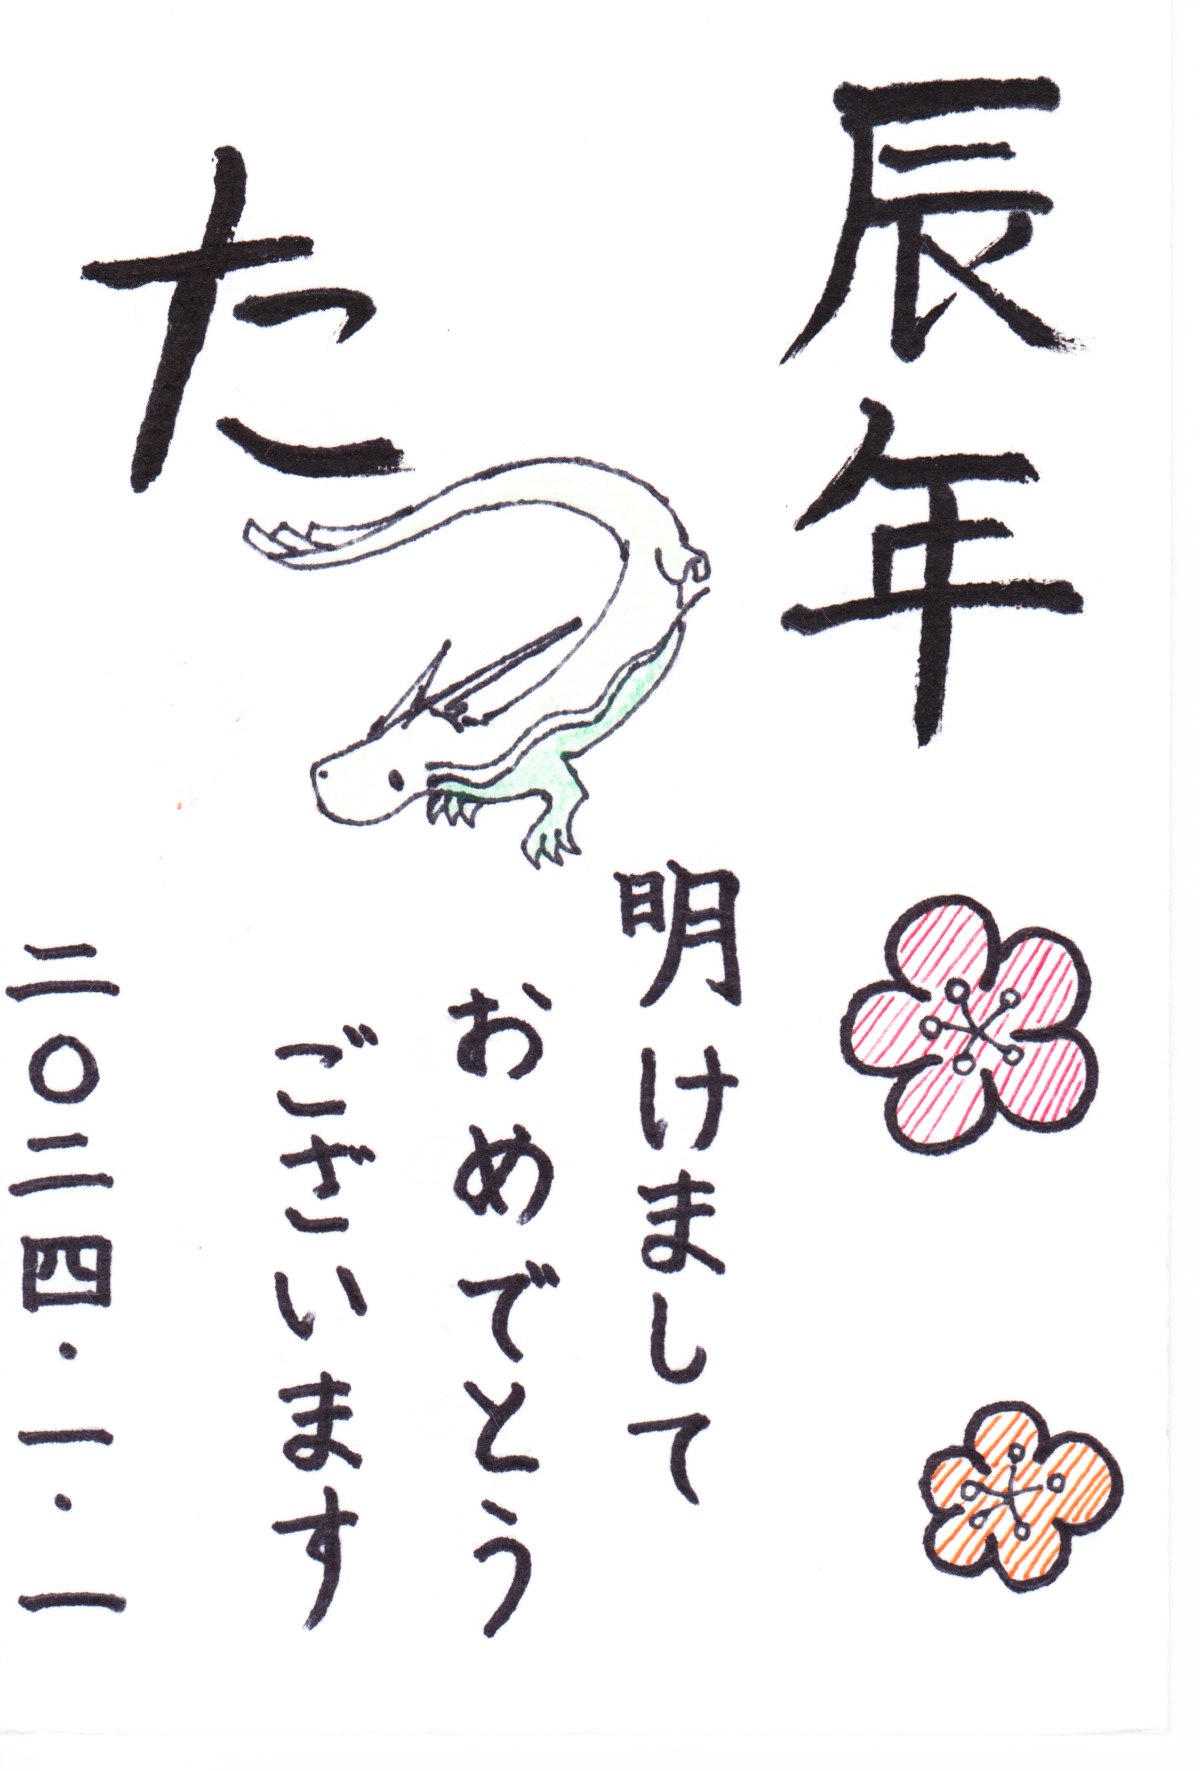 辰年
た
明けまして
おめでとう
ございます
二〇二四・一・一